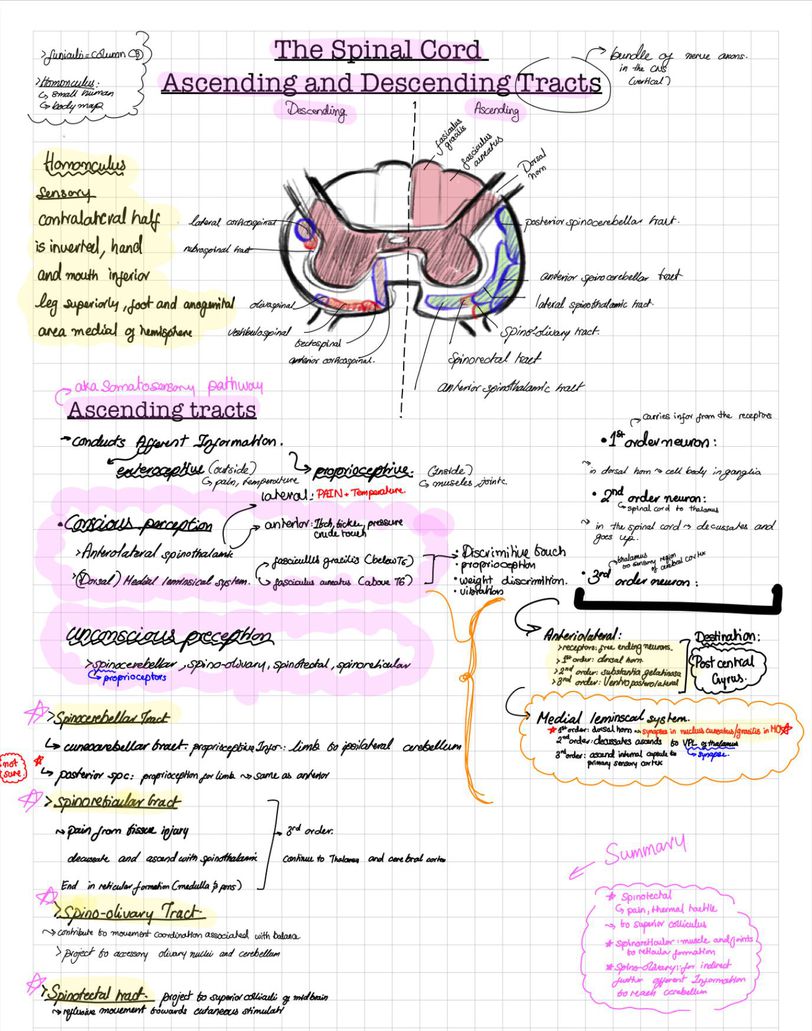 The Spinal Cord
Ascending and Descending Tracts
> funiculi = column
> Homonculus:
↳ small human
↳ body map
bundle of nerve axons.
in the CNS
(vertical)
Descending
Ascending
fasciculus gracilis
fasciculus cuneatus
Dorsal horn
Homonculus
Sensory
contralateral half
is inverted, hand
and mouth inferior
leg superiorly, foot and anogenital
area medial of hemisphere
lateral corticospinal
rubrospinal tract
olivospinal
vestibulospinal
tectospinal
anterior corticospinal.
posterior spinocerebellar tract.
anterior spinocerebellar tract
lateral spinothalamic tract.
Spino-olivary tract.
Spinorectal tract
anterior spinothalamic tract
aka Somatosensory pathway
Ascending tracts
conducts Afferent Information.
exteroceptive (outside)
↳ pain, temperature
proprioceptive. (inside)
↳ muscles joints.
• Conscious perception
lateral: PAIN + Temperature.
anterior: Itch, tickle, pressure
crude touch
> Anterolateral spinothalamic
> (Dorsal) Medial leminsical system.
fascicullus gracilis (below T6)
fasciculus cuneatus (above T6)
• Discrimitive touch
• proprioception
• weight discrimition.
• vibration
carries infor from the receptors
• 1st order neuron:
~ in dorsal horn → cell body in ganglia
• 2nd order neuron:
↳ spinal cord to thalamus
~ in the spinal cord → decussates and
goes up.
thalamus
to sensory region
of cerebral cortex
• 3rd order neuron:
Unconscious preception
> spinocerebellar, spino-olivary, spinotectal, spinoreticular
↳ proprioceptors
Anteriolateral:
> receptors: free ending neurons.
> 1st order: dorsal horn.
> 2nd order: substantia gelatinosa
> 3rd order: Ventroposterolateral
Destination:
Post central
Gyrus.
Medial leminscal system.
1st order: dorsal horn → synapses in nucleus cuneatus/gracilis in MO
2nd order: decussates ascends to VPL of thalamus
↳ synapse
3rd order: ascend internal capsule to
primary sensory cortex
> Spinocerebellar Tract
↳ cuneocerebellar tract: proprioceptive Infor: limb to ipsilateral cerebellum
not sure
↳ posterior spc: proprioception for limb ~ same as anterior
> spinoreticular tract
~ pain from tissue injury
decussate and ascend with spinothalamic
End in reticular formation (medulla & pons)
3rd order.
continue to Thalamus and cerebral cortex
> Spino-olivary Tract
~ contribute to movement coordination associated with balance
> project to accessory olivary nuclii and cerebellum
> Spinotectal tract. project to superior colliculi of midbrain
~ reflusive movement towards cutaneous stimulati
Summary
* Spinotectal
↳ pain, thermal tactile
→ to superior colliculus
* spinoreticular: muscle and joints
to reticular formation
* Spino-olivary: for indirect
further afferent information
to reach cerebellum